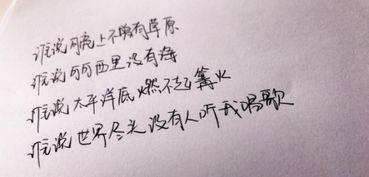 谁说月亮上不曾有草原
谁说可可西里没有海
谁说太平洋底燃不起篝火
谁说世界尽头没有人听我唱歌